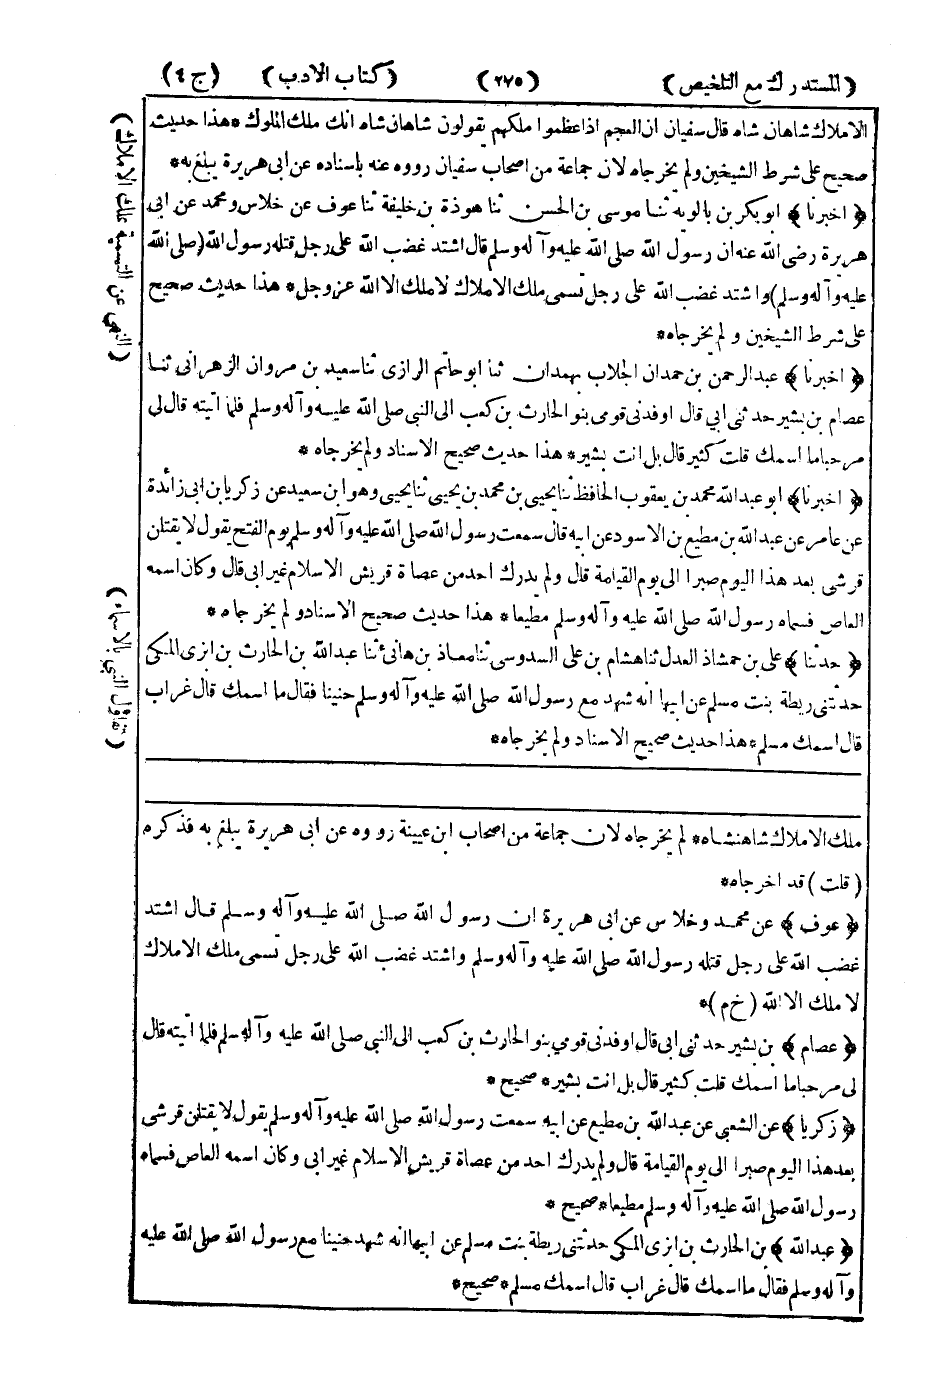 (المستدرك مع التلخيص) (٢٧٥) (كتاب الادب) (ج ٤)
الاملاك شاهان شاه قال سفيان ان العجم اذا عظموا ملكهم يقولون شاهان شاه انك ملك الملوك * هذا حديث
صحيح على شرط الشيخين ولم يخرجاه لان جماعة من اصحاب سفيان رووه عنه باسناده عن ابى هريرة يبلغ به *
﴿ اخبرنا ﴾ ابو بكر بن بالويه ثنا موسى بن الحسن ثنا هوذة بن خليفة ثنا عوف عن خلاس ومحمد عن ابى
هريرة رضى الله عنه ان رسول الله صلى الله عليه وآله وسلم قال اشتد غضب الله على رجل قتله رسول الله (صلى الله
عليه وآله وسلم) واشتد غضب الله على رجل تسمى ملك الاملاك لا ملك الا الله عزوجل * هذا حديث صحيح
على شرط الشيخين و لم يخرجاه *
﴿ اخبرنا ﴾ عبد الرحمن بن حمدان الجلاب بهمدان ثنا ابو حاتم الرازى ثنا سعيد بن مروان الزهرانى ثنا
عصام بن بشير حدثنى ابي قال اوفدنى قومى بنو الحارث بن كعب الى النبي صلى الله عليه وآله وسلم فلما اتيته قال لى
مرحبا ما اسمك قلت كثير قال بل انت بشير * هذا حديث صحيح الاسناد ولم يخرجاه *
﴿ اخبرنا ﴾ ابو عبد الله محمد بن يعقوب الحافظ ثنا يحيى بن محمد بن يحيى ثنا يحيى وهو ابن سعيد عن زكريا بن ابى زائدة
عن عامر عن عبد الله بن مطيع بن الاسود عن ابيه قال سمعت رسول الله صلى الله عليه وآله وسلم يوم الفتح يقول لا يقتلن
قرشى بعد هذا اليوم صبرا الى يوم القيامة قال ولم يدرك احد من عصاة قريش الاسلام غير ابى قال وكان اسمه
العاص فسماه رسول الله صلى الله عليه وآله وسلم مطيعا * هذا حديث صحيح الاسناد ولم يخرجاه *
﴿ حدثنا ﴾ على بن حمشاذ العدل ثنا هشام بن على السدوسى ثنا معاذ بن هانئ ثنا عبد الله بن الحارث بن ابزى المكى
حدثتنى ريطة بنت مسلم عن ابيها انه شهد مع رسول الله صلى الله عليه وآله وسلم حنينا فقال ما اسمك قال غراب
قال اسمك مسلم * هذا حديث صحيح الاسناد ولم يخرجاه *
(النهى عن التسمية بملك الاملاك)
(تفاؤل النبي بالاسماء)
ملك الاملاك شاهنشاه * لم يخرجاه لان جماعة من اصحاب ابن عيينة رووه عن ابى هريرة يبلغ به فذكره
(قلت) قد اخرجاه *
﴿ عوف ﴾ عن محمد وخلاس عن ابى هريرة ان رسول الله صلى الله عليه وآله وسلم قال اشتد
غضب الله على رجل قتله رسول الله صلى الله عليه وآله وسلم واشتد غضب الله على رجل تسمى ملك الاملاك
لا ملك الا الله (خ م) *
﴿ عصام ﴾ بن بشير حدثنى ابى قال اوفدنى قومي بنو الحارث بن كعب الى النبي صلى الله عليه وآله وسلم فلما اتيته قال
لى مرحبا ما اسمك قلت كثير قال بل انت بشير * صحيح *
﴿ زكريا ﴾ عن الشعبي عن عبد الله بن مطيع عن ابيه سمعت رسول الله صلى الله عليه وآله وسلم يقول لا يقتلن قرشى
بعد هذا اليوم صبرا الى يوم القيامة قال ولم يدرك احد من عصاة قريش الاسلام غير ابى وكان اسمه العاص فسماه
رسول الله صلى الله عليه وآله وسلم مطيعا * صحيح *
﴿ عبد الله ﴾ بن الحارث بن ابزى المكى حدثتنى ريطة بنت مسلم عن ابيها انه شهد حنينا مع رسول الله صلى الله عليه
وآله وسلم فقال ما اسمك قال غراب قال اسمك مسلم * صحيح *